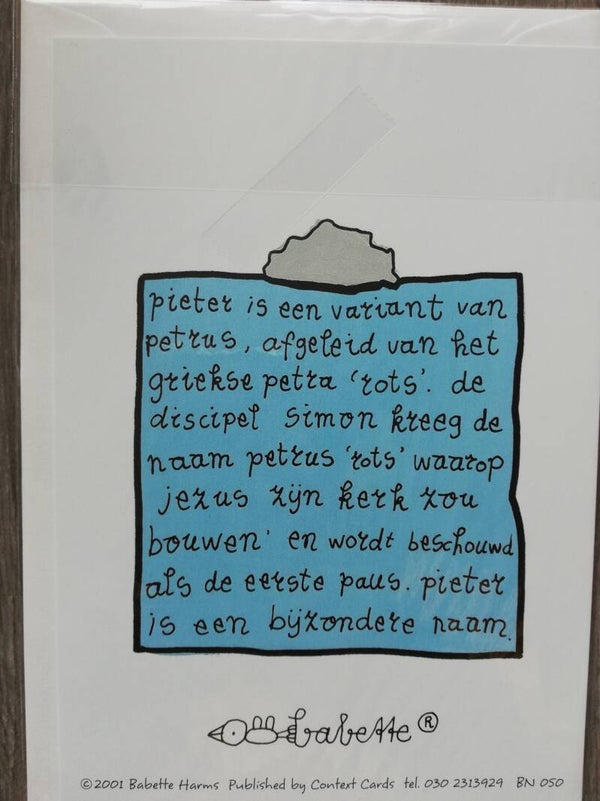 pieter is een variant van
petrus, afgeleid van het
griekse petra 'rots'. de
discipel simon kreeg de
naam petrus 'rots' waarop
jezus zijn kerk zou
bouwen' en wordt beschouwd
als de eerste paus. pieter
is een bijzondere naam.
babette ®
©2001 Babette Harms Published by Context Cards tel. 030 2313929 BN 050